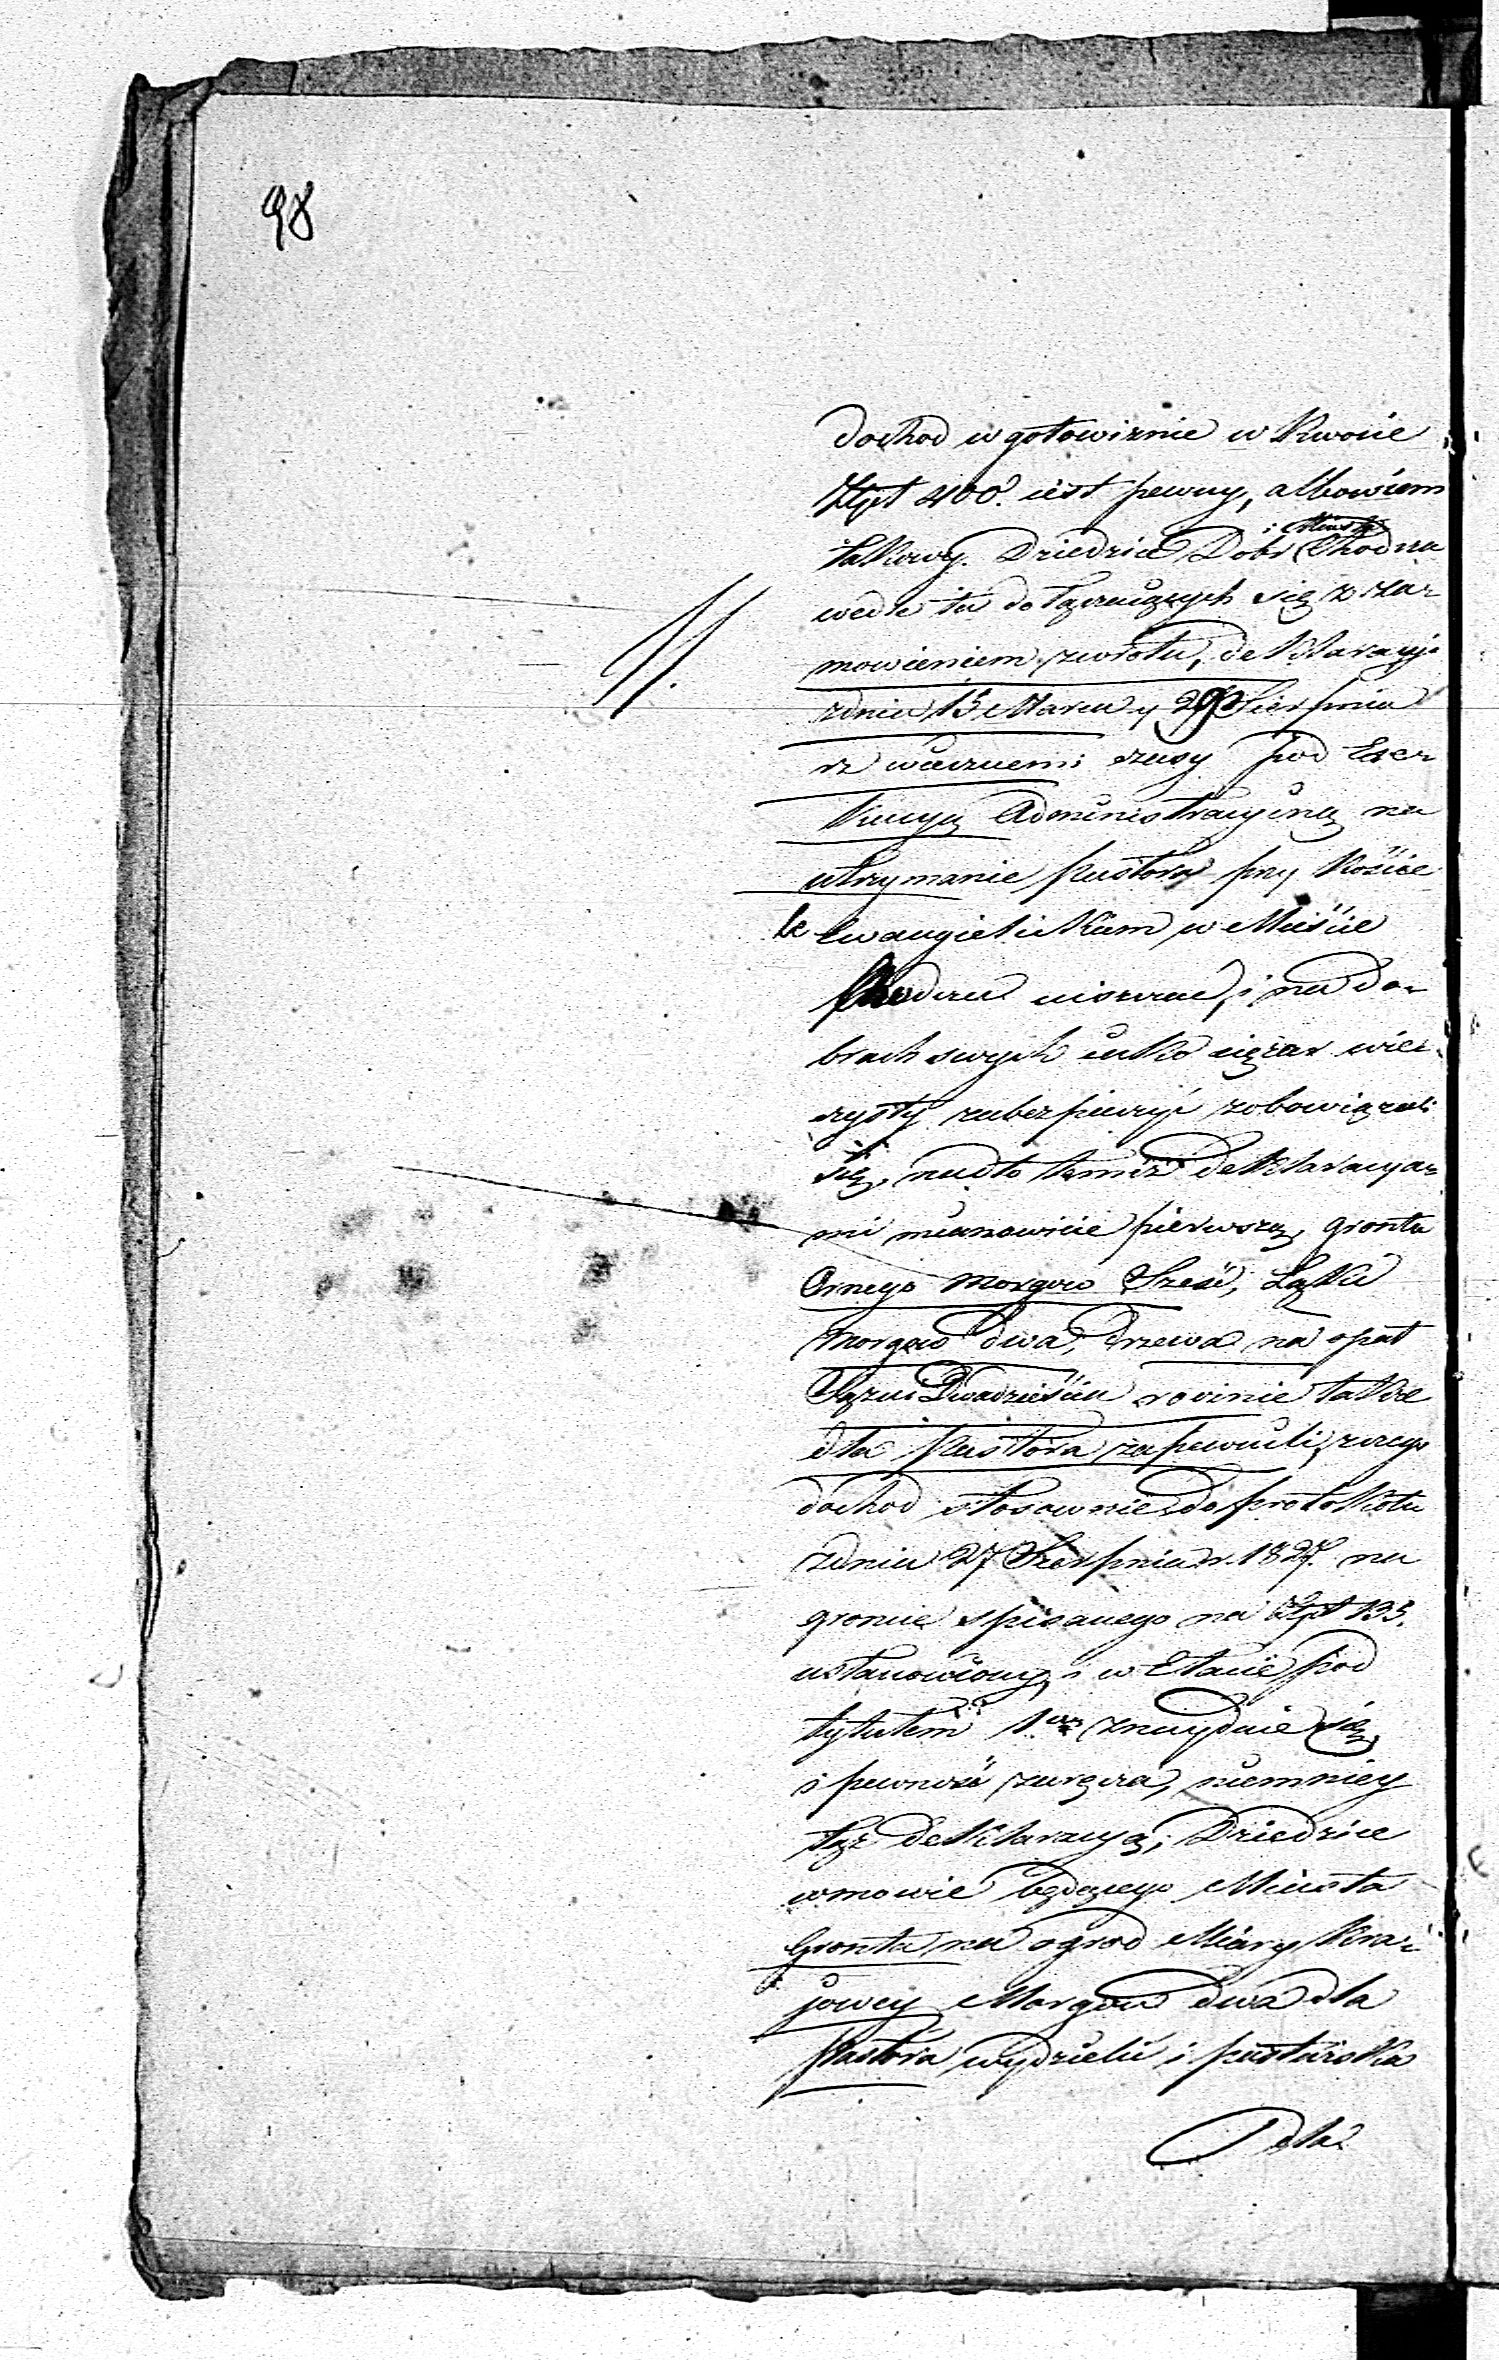 98
dochod w gotowiznie w Kwocie
Złpt 400. iest pewny, albowiem
i Miasta
takowy. Dziedzic Dobr Chodcza
wedle tu dołączaiących się z za=
mowieniem zwrotu, deklaracyi
zdnia 15 Marca y 29 Sierpnia
rz wiecznemi czasy pod Exe=
kucyą Administracyiną na
utrzymanie Pastora przy Kościele
Ewangielickim w Mieście
Chodczu uiszczać, i na do=
brach swych iako ciężar wie=
czysty zabezpieczyć zobowiązali
się, nadto temiż deklaracya=
mi mianowicie pierwszą, gronta
Ornego morgow Sześć, Łąki
morgow dwa, drzewa na opał
Sążni Dwadzieścia rocznie także
dla Pastora zapewnili, czego
dochod stosownie do protokołu
zdnia 27 Sierpnia r. 1827. na
groncie spisanego na Złpt 135.
ustanowiony, i w Etacie pod
tytułem 1ym znayduie się,
i pewność zaręcza, niemniey
tąż deklaracyą, Dziedzice
wmowie będącego Miasta
Gronta na ogrod Miary Kra=
jowey Morgow dwa dla
Pastora wydzielić i pastwiska
dla